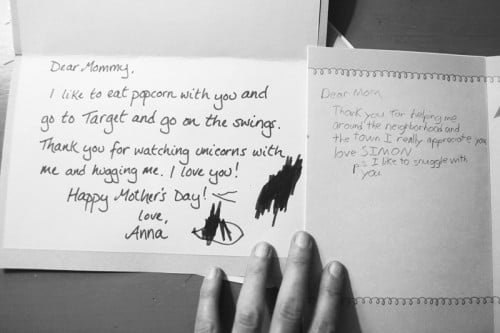 Dear Mommy,
I like to eat popcorn with you and
go to Target and go on the swings.
Thank you for watching unicorns with
me and hugging me. I love you!
Happy Mother's Day!
love,
Anna
Dear Mom,
Thank you for helping me
around the neighborhood and
the town I really appreciate you
love SIMON
PS I like to snuggle with
you